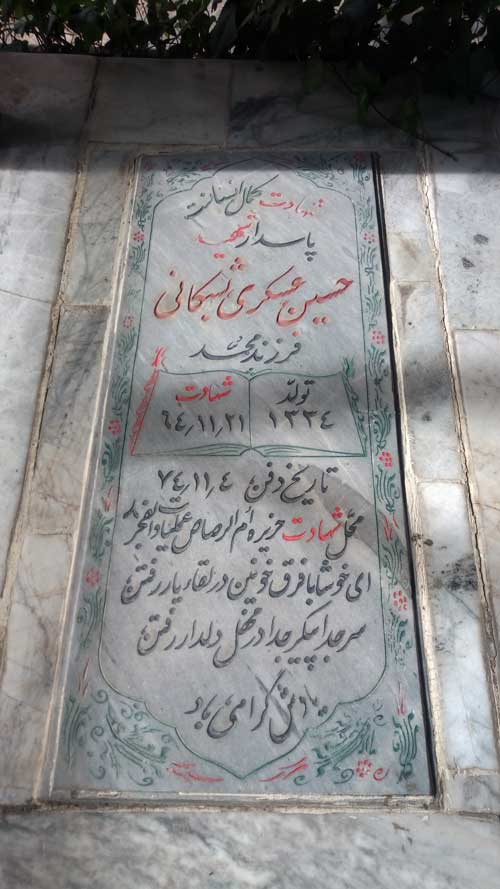 شهادت کمال انسان است
پاسدار شهید
حسین عسکری تشکانی
فرزند محمد
تولد
۱۳۳۴
شهادت
۶۴٫۱۱٫۲۱
تاریخ دفن ۷۴٫۱۱٫۴
محل شهادت جزیره أم الرصاص عملیات والفجر ۸
ای خوشا با فرق خونین در لقاء یار رفتن
سر جدا پیکر جدا در محفل دلدار رفتن
یادش گرامی باد